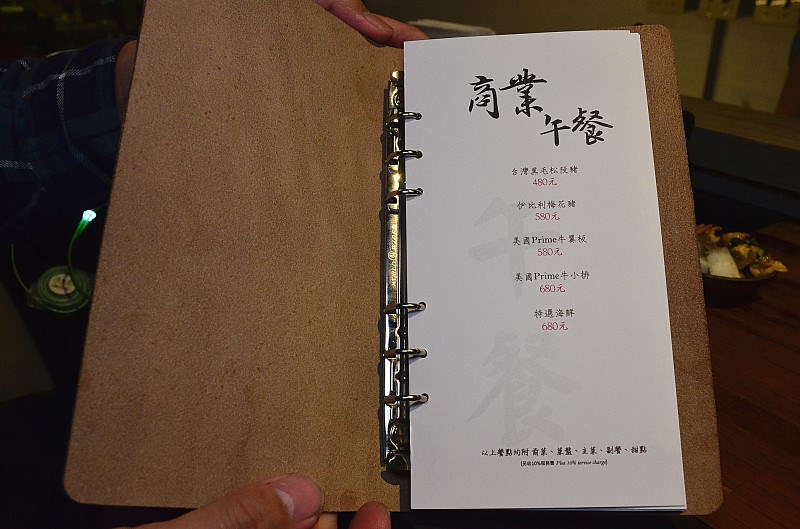 商業
午餐
台灣黑毛松阪豬
480元
伊比利梅花豬
580元
美國Prime牛翼板
580元
美國Prime牛小排
680元
特選海鮮
680元
午餐
以上餐點均附 前菜、菜盤、主菜、副餐、甜點
(另收10%服務費 Plus 10% service charge)